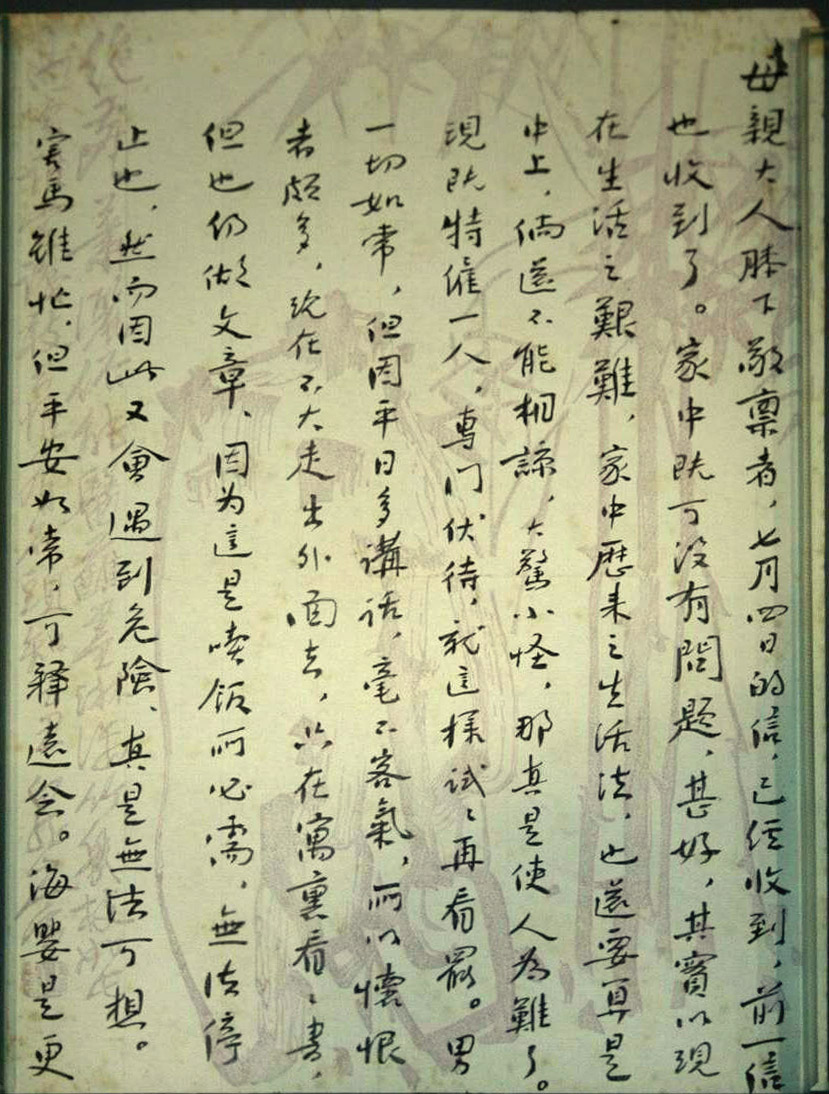 母親大人膝下敬禀者，七月四日的信，已经收到，前一信
也收到了。家中既可没有問題，甚好，其實以現
在生活之艱難，家中歷来之生活法，也還要算是
中上，倘還不能相諒，大驚小怪，那真是使人为難了。
現既特僱一人，專门伏待，就這樣試〻再看罷。男
一切如常，但因平日多講話，毫不客氣，所以懷恨
者頗多，現在不大走出外面去，只在寓裏看〻書，
但也仍做文章，因为這是喫飯所必需，無法停
止也，然而因此又會遇到危險，真是無法可想。
害馬雖忙，但平安如常，可释遠念。海嬰是更